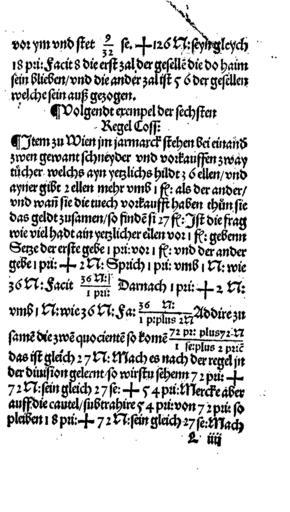 vor ym vnd stet 9/32 se. + 126 N: seyn gleych
18 pri: Facit 8 die erst zal der gesellē die do haim
sein blieben/ vnd die ander zal ist 56 der gesellen
welche sein auß gezogen.
¶Volgendt exempel der sechsten
Regel Coss:
¶Item zu Wien jm jarmarck stehen bei einand
zwen gewant schneyder vnd vorkauffen zway
tücher welchs ayn yetzlichs hildt 36 ellen/ vnd
ayner gibt 2 ellen mehr vmb 1 fl: als der ander/
vnd wañ sie die tuech vorkaufft haben thün sie
das geldt zusamen/ so finde sí 27 fl: Jst die frag
wie viel hadt ain yetzlicher eilen vor 1 fl: gebenn
Setze der erste gebe 1 pri: vor 1 fl: vnd der ander
gebe 1 pri: + 2 N: Sprich 1 pri: vmb 1 N: wie
36 N: Facit 36 N:/1 pri: Darnach 1 pri: + 2 N:
vmb 1 N: wie 36 N: Fa: 36 N:/1 pri: plus 2 N Addire zu
samē die zwen quocientē so komē 72 pri: plus 72 N/1 se: plus 2 priē
das ist gleich 27 N: Mach es nach der regel jn
der diuision gelernt/ so wirstu sehenn 72 pri: +
72 N: sein gleich 27 se: + 54 pri: Mercke aber
auff die cautel/ subtrahire 54 pri: von 72 pri: so
pleiben 18 pri: + 72 N: sein gleich 27 se: Mach
L iiij